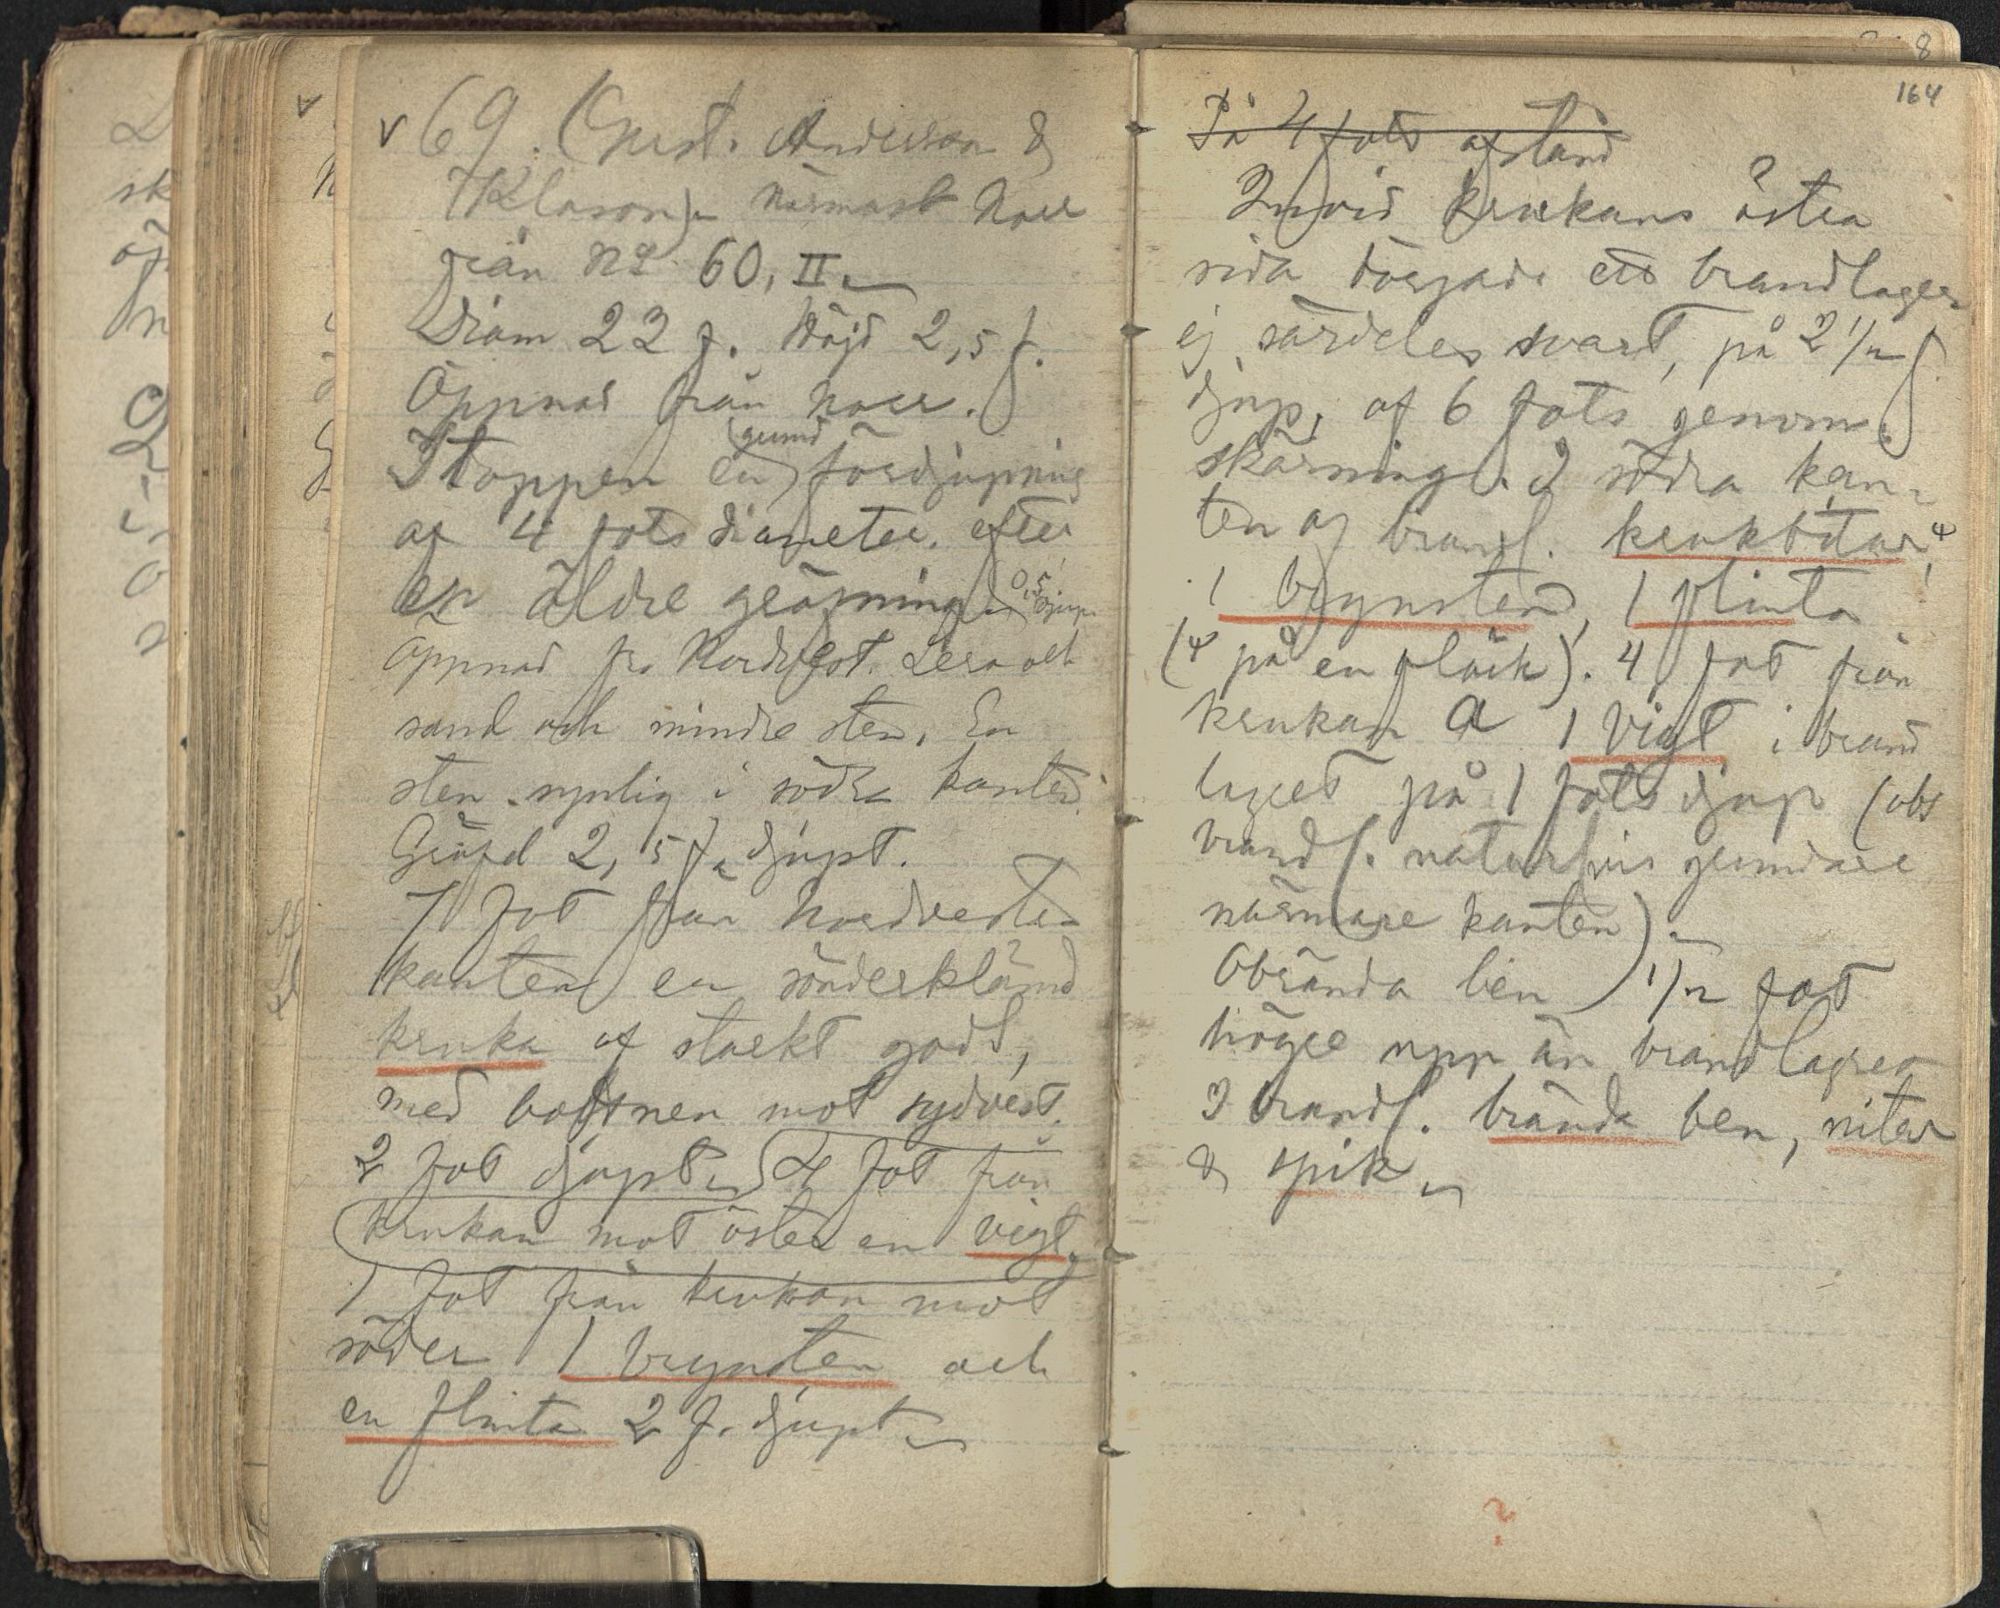 v 69. (Gust. Anderson &
Klason). Närmast Norr
från No 60, II.
Diam 22 f. Höjd 2,5 f.
Öppnad från Norr.
I toppen en (grund) fördjupning
af 4 fots diameter. efter
en äldre gräfning. 0,5 djup
Öppnad fr. Nordvest. Lera och
sand och mindre sten. En
sten synlig i södra kanten.
Gräfd 2,5 f. djupt.
7 fot från Nordvestra
kanten en sönderklämd
kruka af starkt gods,
med bottnen mot sydvest.
2 fot djupt. 4 fot från
krukan mot öster en vigt.
1 fot från krukan mot
söder 1 brynsten och
en flinta 2 f. djupt
164
På 4 fots afstånd
Invid krukans östra
sida började ett brandlager
ej särdeles svart, på 2 1/2 f.
djup, af 6 fots genom-
skärning. I södra kan-
ten af brandl. krukbitar, 4
1 brynsten, 1 flinta
(4 på en fläck). 4 fot från
krukan a 1 vigt i brand
lagret på 1 fots djup (obs
brandl. naturligtvis grundare
närmare kanten).
Obrända ben 1/2 fot
högre upp än brandlagret
I brandl. brända ben, nitar
& spik.
?